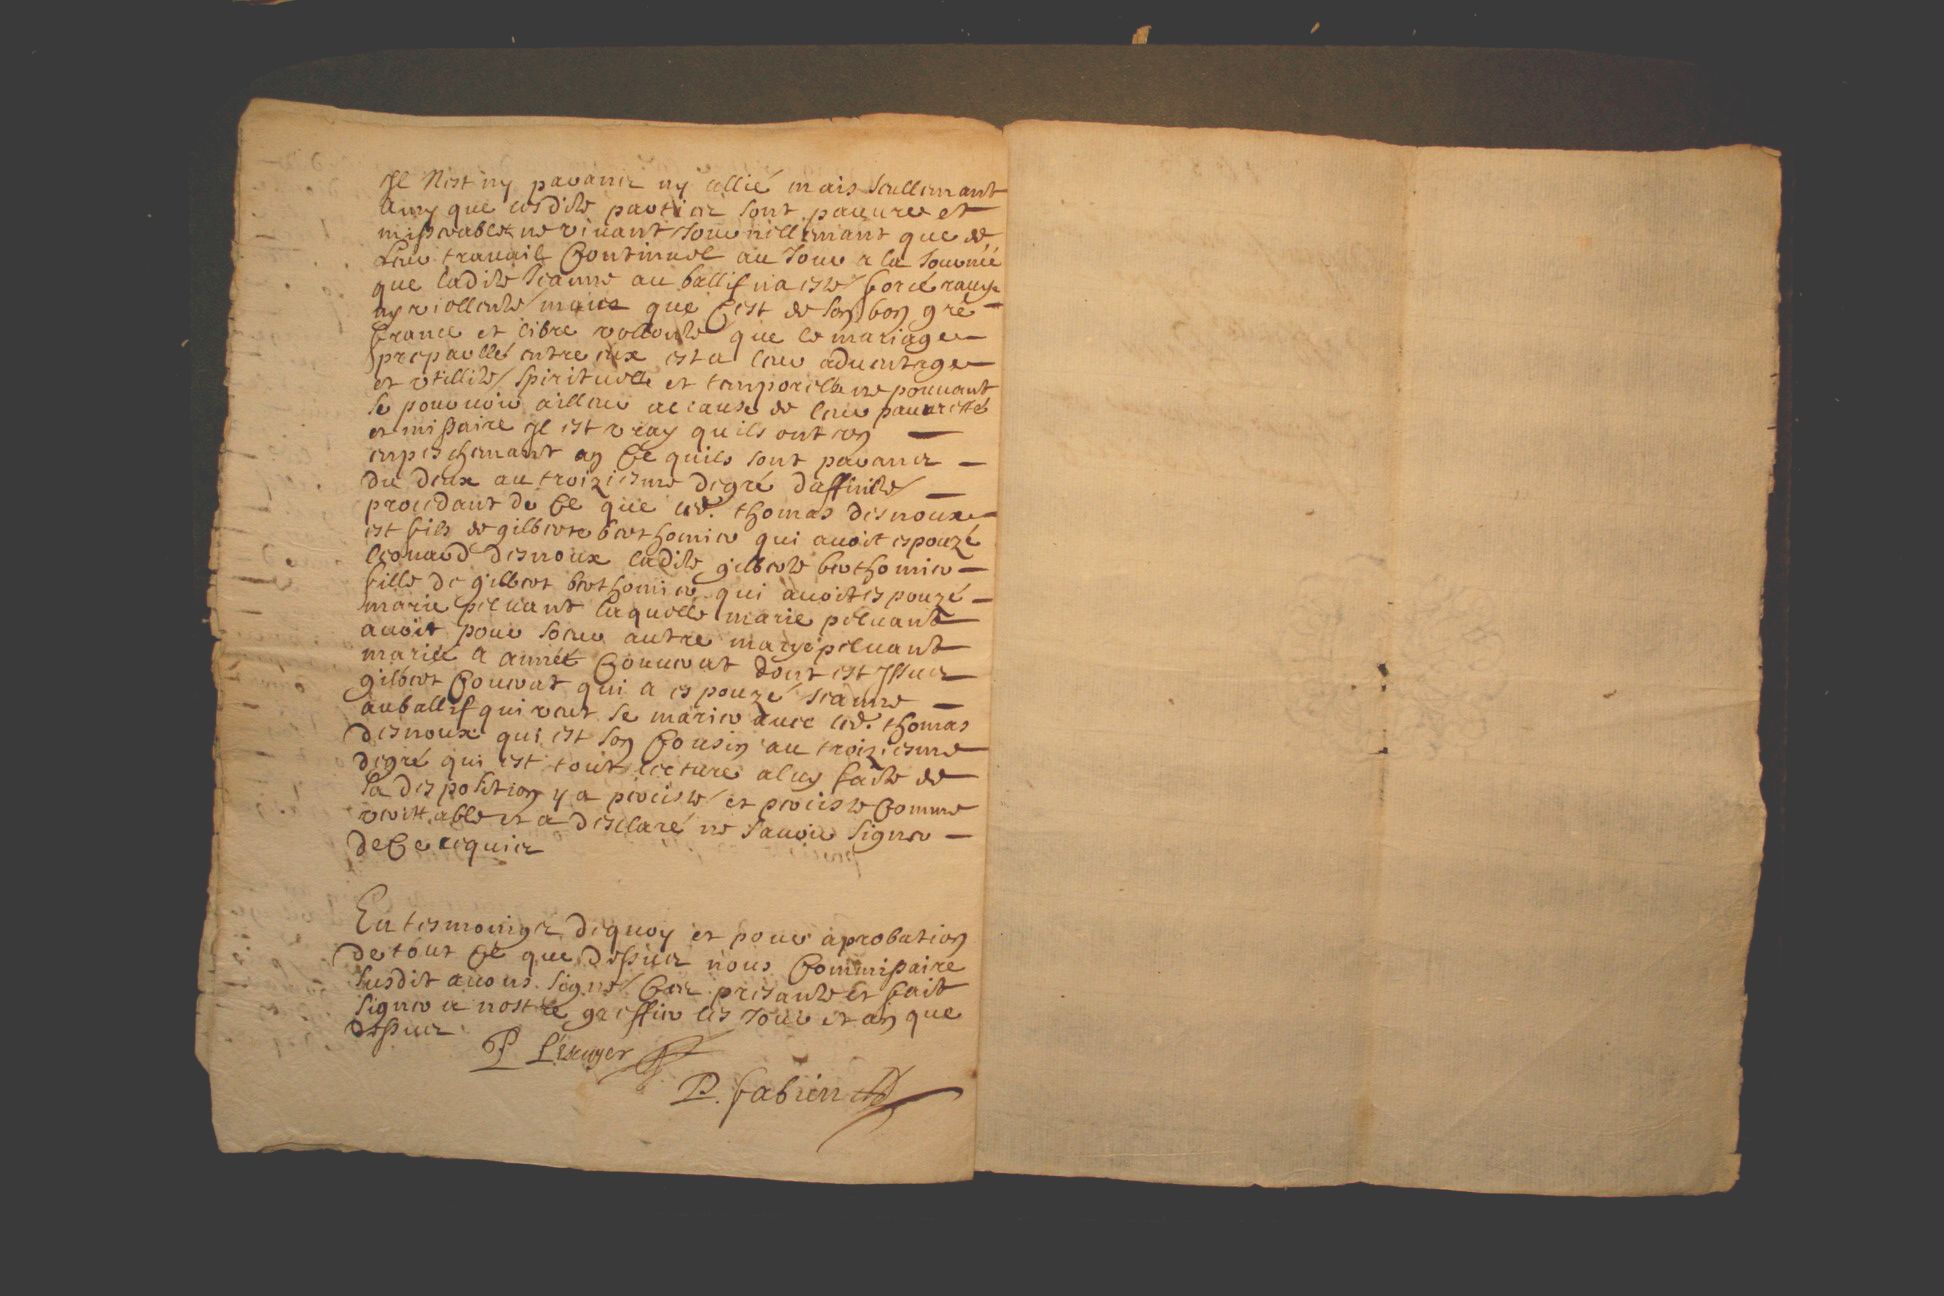 Il n'est ny parans ny allié mais seullemant
amy que lesdits partier sont pauures et
misserables ne viuant journillemant que de
leur trauail Continuel au jour a la journéé
que ladite Jeanne auballif n'a este forcé rauye
ny viollente mais que C'est de son bon gré
franc et libre vollonte que le mariage
preparllé entre eux est a leur aduentage
et vtillite spirituelle et tamporelle ne pouuant
se pouruoir ailleur a cause de leur pauurettes
et missaire Il est vray qu'ils ont un
empeschemant en Ce quils sont parans
du deux au troiziesme degré d'affinite
procedant de Ce que led. thomas desnoux
est fils de gilberte berthomier qui auoit espouzé
leonard desnoux ladite gilberte berthomier
fille de gilbert berthomier qui auoit espouzé
marie peluant laquelle marie peluant
auoit pour soeur autre marye peluant
marieé a Couuerat dont est Issus
gilbert Couuerat qui a espouzé Jeanne
auballif qui veut se marier auec led. thomas
desnoux qui est son Cousin au troiziesme
degré qui est tout lecture a luy faite de
sa desposition y a perciste et perciste Comme
veritt.able et a desclaré ne sauoir signer
de Ce requis
En tesmonigs dequoy et pour aprobation
de tout Ce que dessus nous Commissaire
susdit auons signé Ces presante et fait
signer a nostre greffier les jour et an que
dessus
P Lescuyer
P. fabien